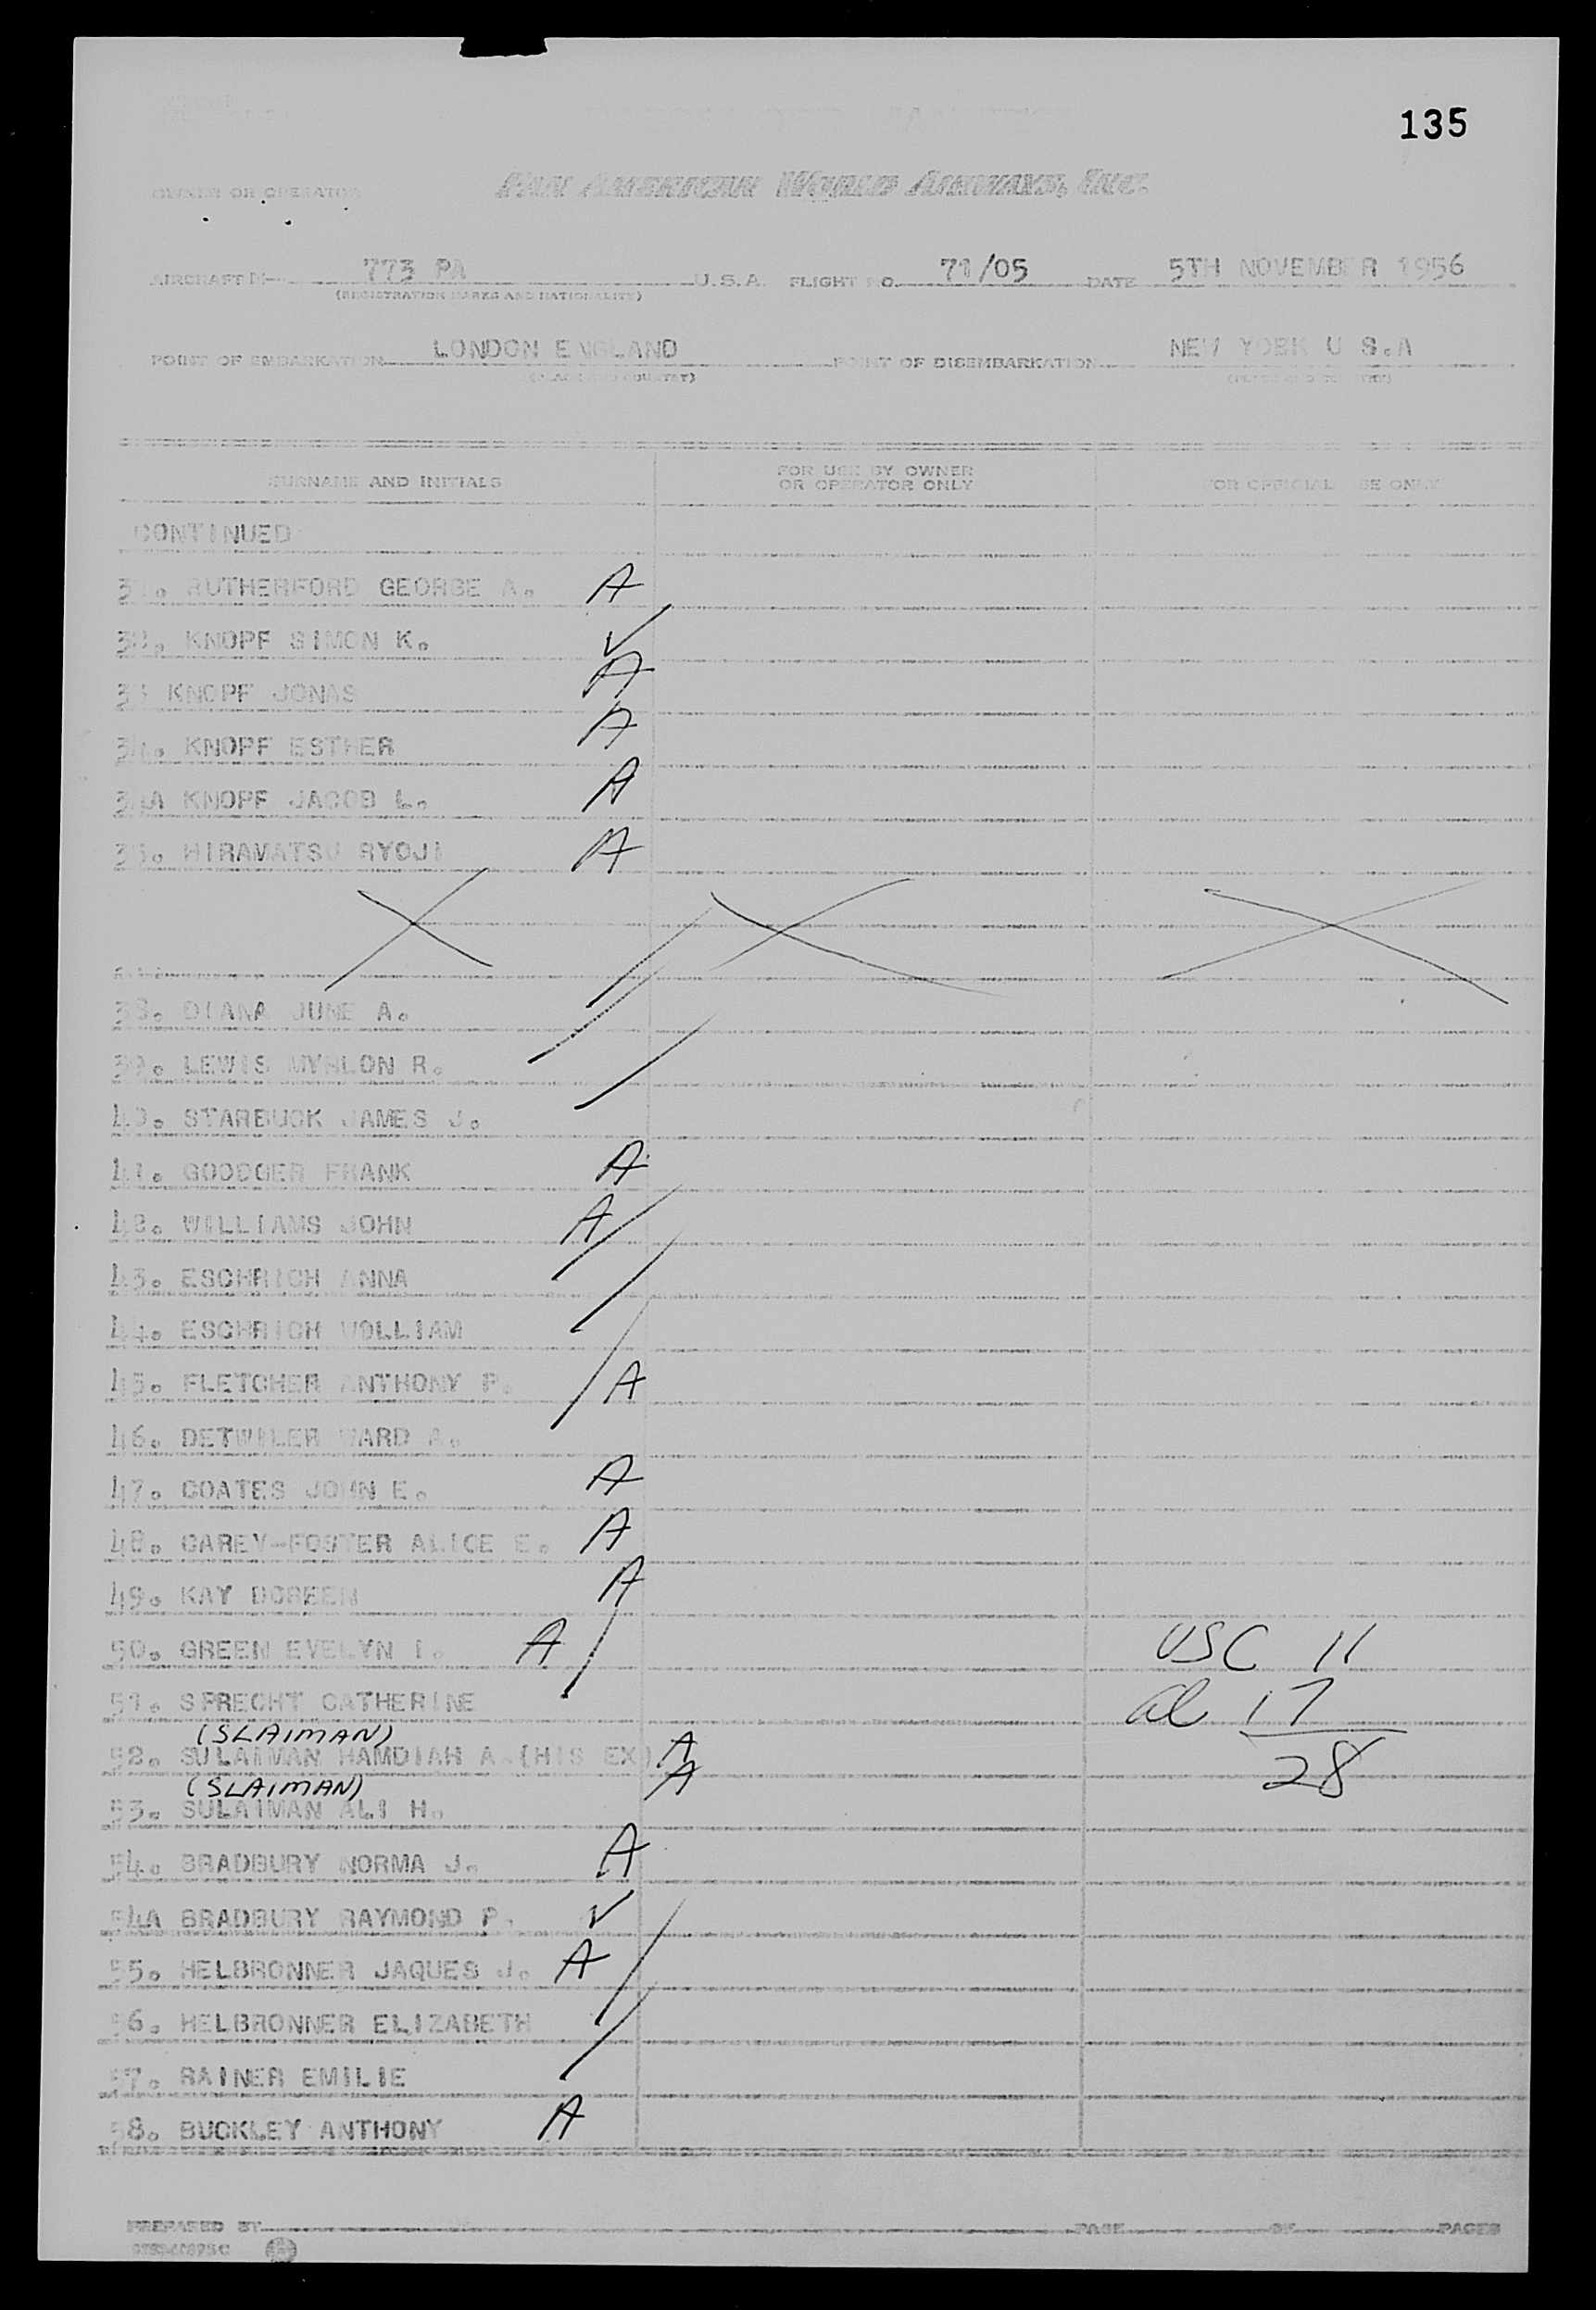 135
OWNER OR OPERATOR
PAN AMERICAN WORLD AIRWAYS, INC.
AIRCRAFT N 773 PA U.S.A. FLIGHT NO. 71/05 DATE 5TH NOVEMBER 1956
(REGISTRATION MARKS AND NATIONALITY)
POINT OF EMBARKATION LONDON ENGLAND POINT OF DISEMBARKATION NEW YORK U S.A
(PLACE AND COUNTRY) (PLACE AND COUNTRY)
SURNAME AND INITIALS FOR USE BY OWNER OR OPERATOR ONLY FOR OFFICIAL USE ONLY
CONTINUED
31. RUTHERFORD GEORGE A. A
32. KNOPF SIMON K. ✓
33 KNOPF JONAS A
34. KNOPF ESTHER A
34A KNOPF JACOB L. A
35. HIRAMATSU RYOJI A
38. DIANA JUNE A.
39. LEWIS MYHLON R.
40. STARBUCK JAMES J.
41. GOODGER FRANK A
42. WILLIAMS JOHN A
43. ESCHRICH ANNA
44. ESCHRICH WOLLIAM
45. FLETCHER ANTHONY P. A
46. DETWILER WARD A.
47. COATES JOHN E. A
48. CAREY-FOSTER ALICE E. A
49. KAY DOREEN A
50. GREEN EVELYN I. A USC 11
51. SPRECHT CATHERINE al 17
(SLAIMAN)
52. SULAIMAN HAMDIAH A.(HIS EX) A 28
(SLAIMAN) A
53. SULAIMAN ALI H.
54. BRADBURY NORMA J. A
54A BRADBURY RAYMOND P. ✓
55. HELBRONNER JAQUES J. A
56. HELBRONNER ELIZABETH
57. RAINER EMILIE
58. BUCKLEY ANTHONY A
PREPARED BY PAGE OF PAGES